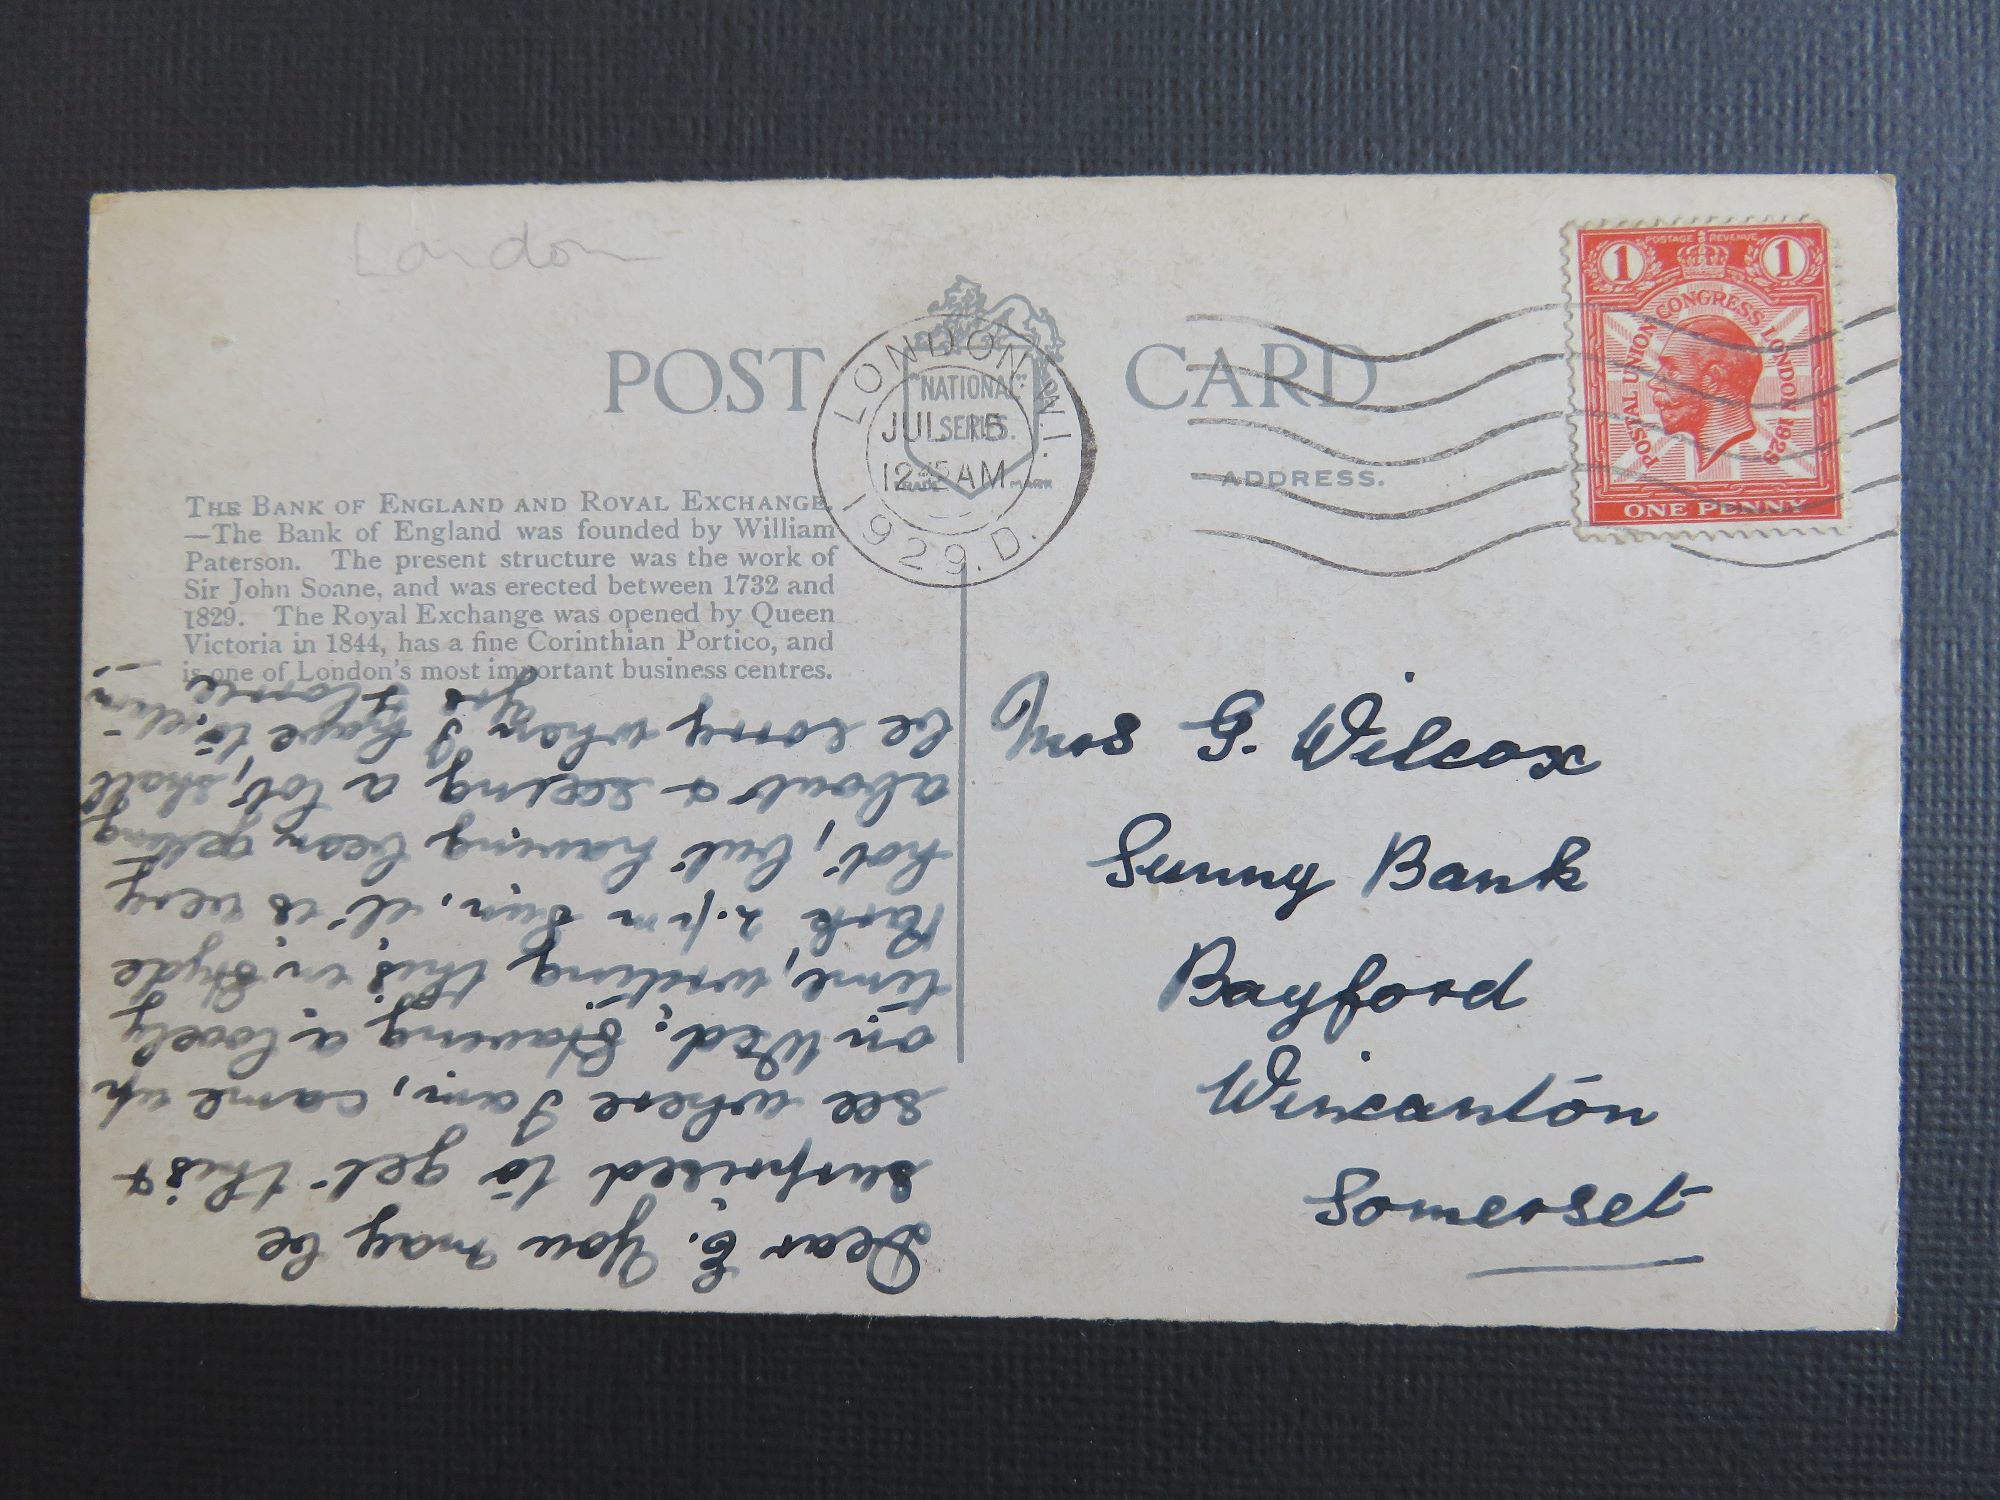 London
POST CARD
"NATIONAL"
SERIES.
TRADE MARK
LONDON. W.1.
JUL 15
12 45 AM
1929. D.
ADDRESS.
POSTAGE REVENUE
1 1
POSTAL UNION CONGRESS LONDON 1929
ONE PENNY
THE BANK OF ENGLAND AND ROYAL EXCHANGE.
—The Bank of England was founded by William
Paterson. The present structure was the work of
Sir John Soane, and was erected between 1732 and
1829. The Royal Exchange was opened by Queen
Victoria in 1844, has a fine Corinthian Portico, and
is one of London's most important business centres.
Dear E. You may be
surprised to get this &
see where I am, came up
on Wed; Having a lovely
time, writing this in Hyde
Park 2.pm Sun, it is very
hot, but having been getting
about & seeing a lot, shall
be sorry when I have to return
Mrs G. Wilcox
Sunny Bank
Bayford
Wincanton
Somerset